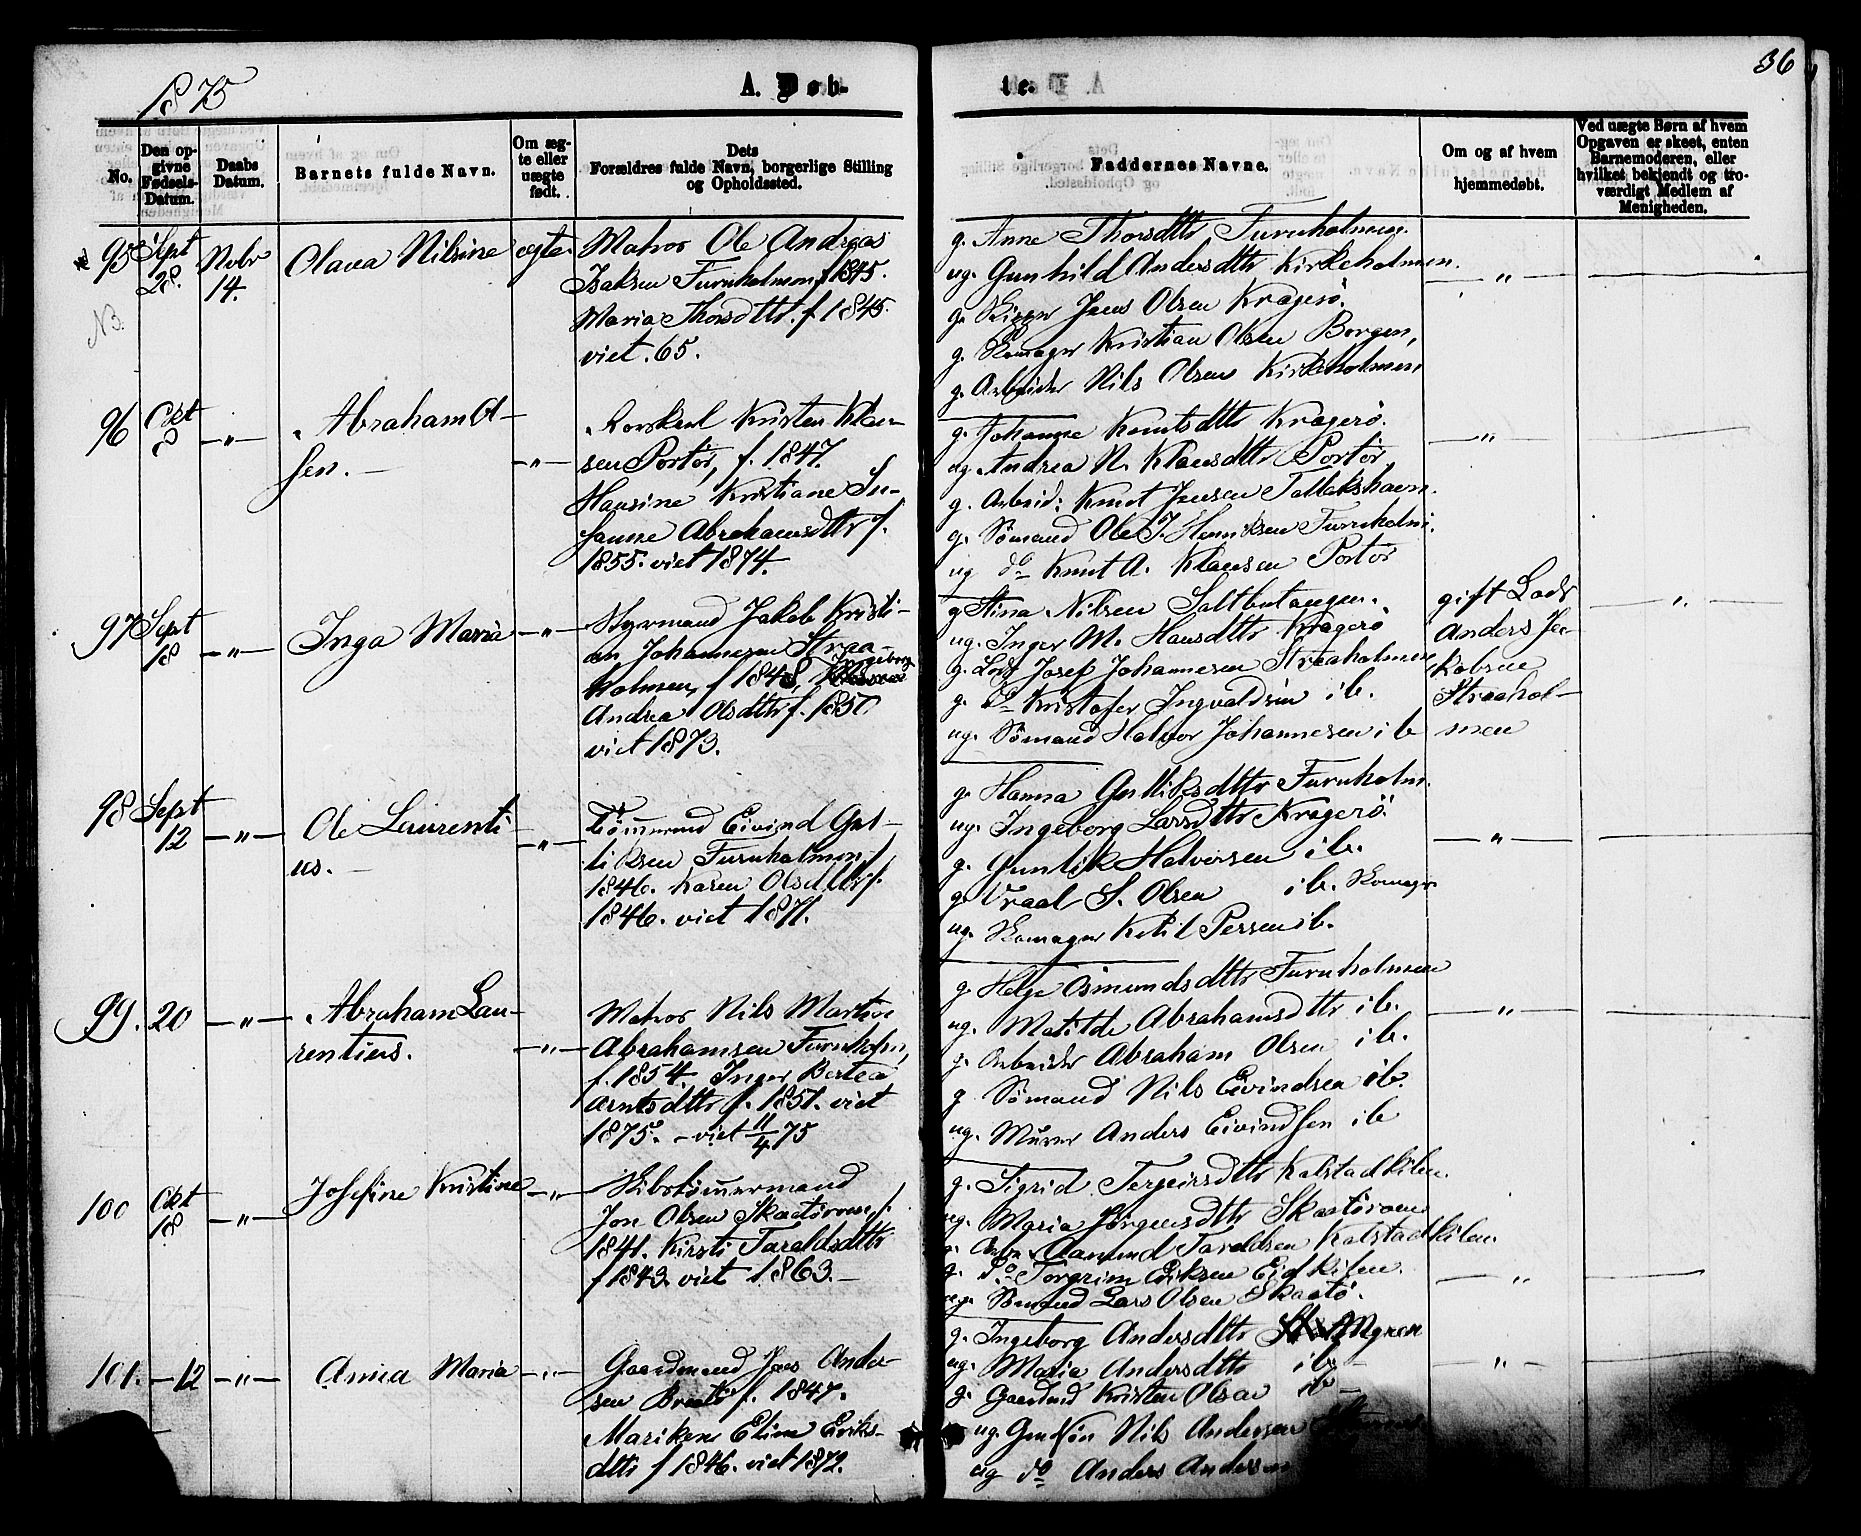 1875
A. Døb-
te.
36
No.
Den op-
givne
Fødsels-
Datum.
Daabs
Datum.
Barnets fulde Navn.
Om æg-
te eller
uægte
født.
Dets
Forældres fulde Navn, borgerlige Stilling
og Opholdssted.
Faddernes Navne.
Om og af hvem
hjemmedøbt.
Ved uægte Børn af hvem
Opgaven er skeet, enten
Barnemoderen, eller
hvilket bekjendt og tro-
værdigt Medlem af
Menigheden.
95
Sept
28.
Nvbr
14.
Olava Nilsine
ægte
Matros Ole Andreas
Isaksen Furuholmen f 1845.
Maria Thorsdttr. f. 1845.
viet. 65.
g. Anne Thorsdttr Furuholmen.
ug. Gunhild Andersdttr Kirkeholmen.
g. Skipper Jens Olsen Kragerö.
g. Skomager Kristian Olsen Borgen,
g. Arbeider Nils Olsen Kirkeholmen
— " —
NB.
96
Okt
8
— " —
Abraham A-
sen. —
— " —
Kristen Klau-
sen Portör, f. 1847.
Hansine Kristiane Su-
sanne Abrahamsdttr f.
1855. viet 1874.
g. Johanne Knutsdttr Kragerö.
ug. Andrea N. Klausdttr Portör
g. Arbeid: Knut Jensen Tallakshavn.
g. Sömand Ole J. Henriksen Furuholm.
ug do Knut A. Klausen Portör
— " —
97
Sept
18
— " —
Inga Maria
— " —
Styrmand Jakob Kristi-
an Johannesen Straa-
holmen, f 1848, Ingeborg
Andrea Olsdttr f. 1850
viet 1873.
g Stina Nilsen Saltbutangen.
ug. Inger M. Hansdttr Kragerö
g. Lods Josef Johannesen Straaholmen
g. do Kristofer Ingvaldsen ib.
ug. Sömand Halvor Johannesen ib
gift Lods
Anders Ja-
kobsen
Straahol-
men
— " —
98
Sept
12
— " —
Ole Laurenti-
us. —
— " —
Tömmermd Eivind Gul-
liksen Furuholmen f.
1846. Karen Olsdttr f.
1846. viet 1871.
g. Hanna Gulliksdttr Furuholm.
ug. Ingeborg Larsdttr Kragerö.
g. Gunlik Halvorsen ib.
g. Vraal S. Olsen ib. Skomager
ug. Skomager Ketil Persen ib.
— " —
99.
20
— " —
Abraham Lau-
rentius.
— " —
Matros Nils Martin
Abrahamsen Furuholm,
f. 1854, Inger Bertea
Arntsdttr f. 1851. viet
1875. — viet 11/4 75
g. Helge Osmundsdttr Furuholmen
ug. Matilde Abrahamsdttr ib.
g. Arbeider Abraham Olsen ib.
g Sömand Nils Eivindsen ib.
ug. Murer Anders Eivindsen ib
— " —
100
Okt
18
— " —
Josefine Kristine
— " —
Skibstömmermand
Jon Olsen Skaatöroen f.
1841. Kirsti Taraldsdttr
f 1843. viet 1863. —
g. Sigrid Tergeirsdttr Kalstadkilen.
ug. Maria Jörgensdttr Skaatöroen
g. Arbr. Aanund Taraldsen Kalstadkilen.
g. do Torgrim Eriksen Eidkilen.
ug. Sömand Lars Olsen Skaatö.
— " —
101.
— 12
— " —
Anna Maria
— " —
Gaardmand Jens Ander-
sen Braatö f. 1847.
Mariken Eline Eriks-
dttr f 1846. viet 1872.
g. Ingeborg Andersdttr Myren
ug. Maria Andersdttr ib —
g. Gaardmd Kristen Olsen ib —
ug. Nils Andersen
ug do Anders Andersen
— " —